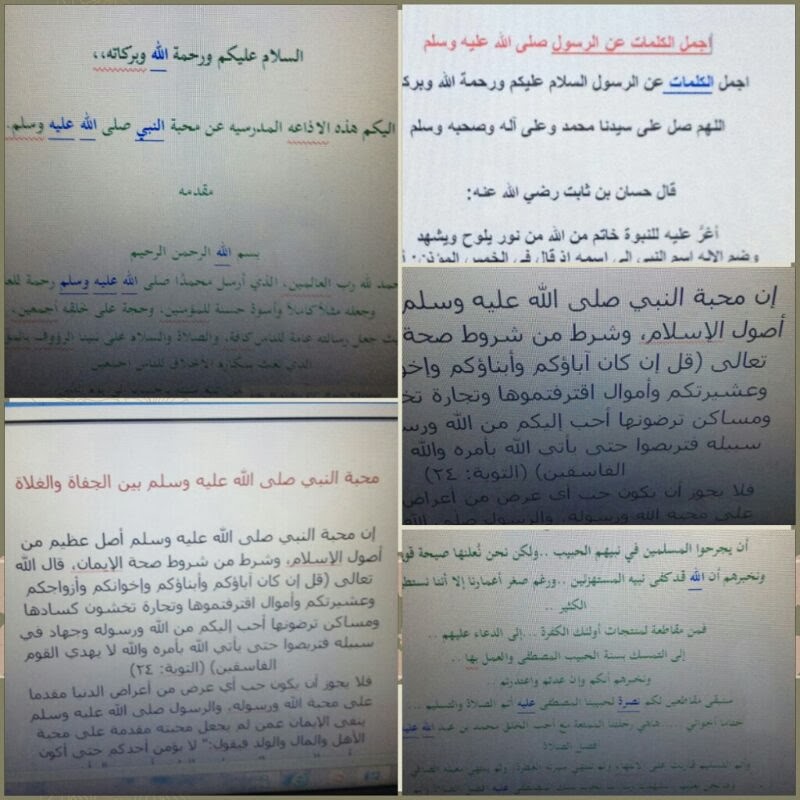 السلام عليكم ورحمة الله وبركاته،،
اليكم هذه الاذاعه المدرسيه عن محبة النبي صلى الله عليه وسلم
مقدمه
بسم الله الرحمن الرحيم
لله رب العالمين، الذي أرسل محمدًا صلى الله عليه وسلم رحمة
وجعله مثلاً كاملاً وأسوة حسنة للمؤمنين، وحجة على خلقه أجمعين،
جعل رسالته عامة للناس كافة، والصلاة والسلام على نبينا الرؤوف
الذي بعث بمكارم الأخلاق للناس أجمعين
اجمل الكلمات عن الرسول صلى الله عليه وسلم
اجمل الكلمات عن الرسول السلام عليكم ورحمة الله
اللهم صل على سيدنا محمد وعلى آله وصحبه وسلم
قال حسان بن ثابت رضي الله عنه:
أغرُّ عليه للنبوة خاتم من الله من نور يلوح ويشهد
وضم الإله اسم النبي إلى اسمه إذ قال في الخمس المؤذن:
إن محبة النبي صلى الله عليه وسلم
أصول الإسلام، وشرط من شروط صحة
تعالى (قل إن كان آباؤكم وأبناؤكم
وعشيرتكم وأموال اقترفتموها وتجارة
ومساكن ترضونها أحب إليكم من الله
سبيله فتربصوا حتى يأتي الله بأمره والله
الفاسقين) (التوبة: ٢٤)
فلا يجوز أن يكون حب أي عرض من أعراض
على محبة الله ورسوله، والرسول صلى الله
محبة النبي صلى الله عليه وسلم بين الجفاة والغلاة
إن محبة النبي صلى الله عليه وسلم أصل عظيم من
أصول الإسلام، وشرط من شروط صحة الإيمان، قال الله
تعالى (قل إن كان آباؤكم وأبناؤكم وإخوانكم وأزواجكم
وعشيرتكم وأموال اقترفتموها وتجارة تخشون كسادها
ومساكن ترضونها أحب إليكم من الله ورسوله وجهاد في
سبيله فتربصوا حتى يأتي الله بأمره والله لا يهدي القوم
الفاسقين) (التوبة: ٢٤)
فلا يجوز أن يكون حب أي عرض من أعراض الدنيا مقدما
على محبة الله ورسوله، والرسول صلى الله عليه وسلم
ينفى الإيمان عمن لم يجعل محبته مقدمة على محبة
الأهل والمال والولد فيقول:" لا يؤمن أحدكم حتى أكون
أن يجرحوا المسلمين في نبيهم الحبيب ..ولكن نحن نُعلنها صيحة
ونخبرهم أن الله قد كفى نبيه المستهزئين ..ورغم صغر أعمارنا إلا أننا
الكثير ..
فمن مقاطعة لمنتجات أولئك الكفرة ...إلى الدعاء عليهم ..
إلى التمسك بسنة الحبيب المصطفى والعمل بها ..
ونخبرهم أنكم وإن عدتم واعتذرتم ..
سنبقى مقاطعين لكم نصرة لحبيبنا المصطفى عليه أتم الصلاة والتسليم ..
ختاما أخواتي .....هاهي رحلتنا الممتعة مع أحب الخلق محمد بن عبد الله
فضل الصلاة